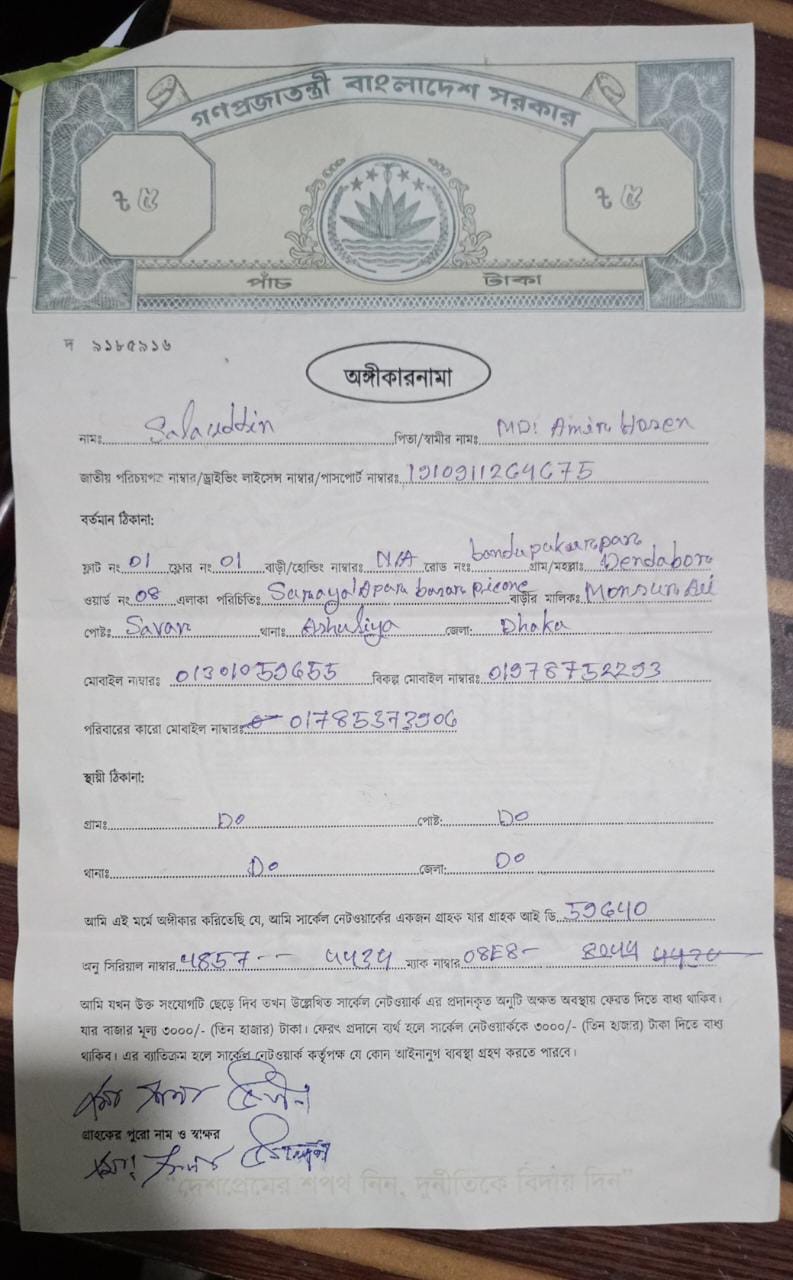 গণপ্রজাতন্ত্রী বাংলাদেশ সরকার
৳ ৫ ৳ ৫
পাঁচ টাকা
দ ৯১৮৫৯১৬
অঙ্গীকারনামা
নামঃ Salauddin পিতা/স্বামীর নামঃ MD: Amir Hosen
জাতীয় পরিচয়পত্র নাম্বার/ড্রাইভিং লাইসেন্স নাম্বার/পাসপোর্ট নাম্বারঃ
বর্তমান ঠিকানা:
ফ্লাট নং 01 ফ্লোর নং 01 বাড়ী/হোল্ডিং নাম্বারঃ N/A রোড নংঃ গ্রাম/মহল্লাঃ Dendabor
ওয়ার্ড নং 08 এলাকা পরিচিতিঃ বাড়ীর মালিকঃ Monsur Ali
পোষ্টঃ Savar থানাঃ Ashuliya জেলা: Dhaka
মোবাইল নাম্বারঃ 01301059655 বিকল্প মোবাইল নাম্বারঃ 01978752293
পরিবারের কারো মোবাইল নাম্বারঃ 01785373906
স্থায়ী ঠিকানা:
গ্রামঃ Do পোষ্ট: Do
থানাঃ Do জেলা: Do
আমি এই মর্মে অঙ্গীকার করিতেছি যে, আমি সার্কেল নেটওয়ার্কের একজন গ্রাহক যার গ্রাহক আই ডি 59640
অনু সিরিয়াল নাম্বার 4857-- ম্যাক নাম্বার 08E8-
আমি যখন উক্ত সংযোগটি ছেড়ে দিব তখন উল্লেখিত সার্কেল নেটওয়ার্ক এর প্রদানকৃত অনুটি অক্ষত অবস্থায় ফেরত দিতে বাধ্য থাকিব।
যার বাজার মূল্য ৩০০০/- (তিন হাজার) টাকা। ফেরৎ প্রদানে ব্যর্থ হলে সার্কেল নেটওয়ার্ককে ৩০০০/- (তিন হাজার) টাকা দিতে বাধ্য
থাকিব। এর ব্যতিক্রম হলে সার্কেল নেটওয়ার্ক কর্তৃপক্ষ যে কোন আইনানুগ ব্যবস্থা গ্রহণ করতে পারবে।
গ্রাহকের পুরো নাম ও স্বাক্ষর
"দেশপ্রেমের শপথ নিন, দুর্নীতিকে বিদায় দিন"